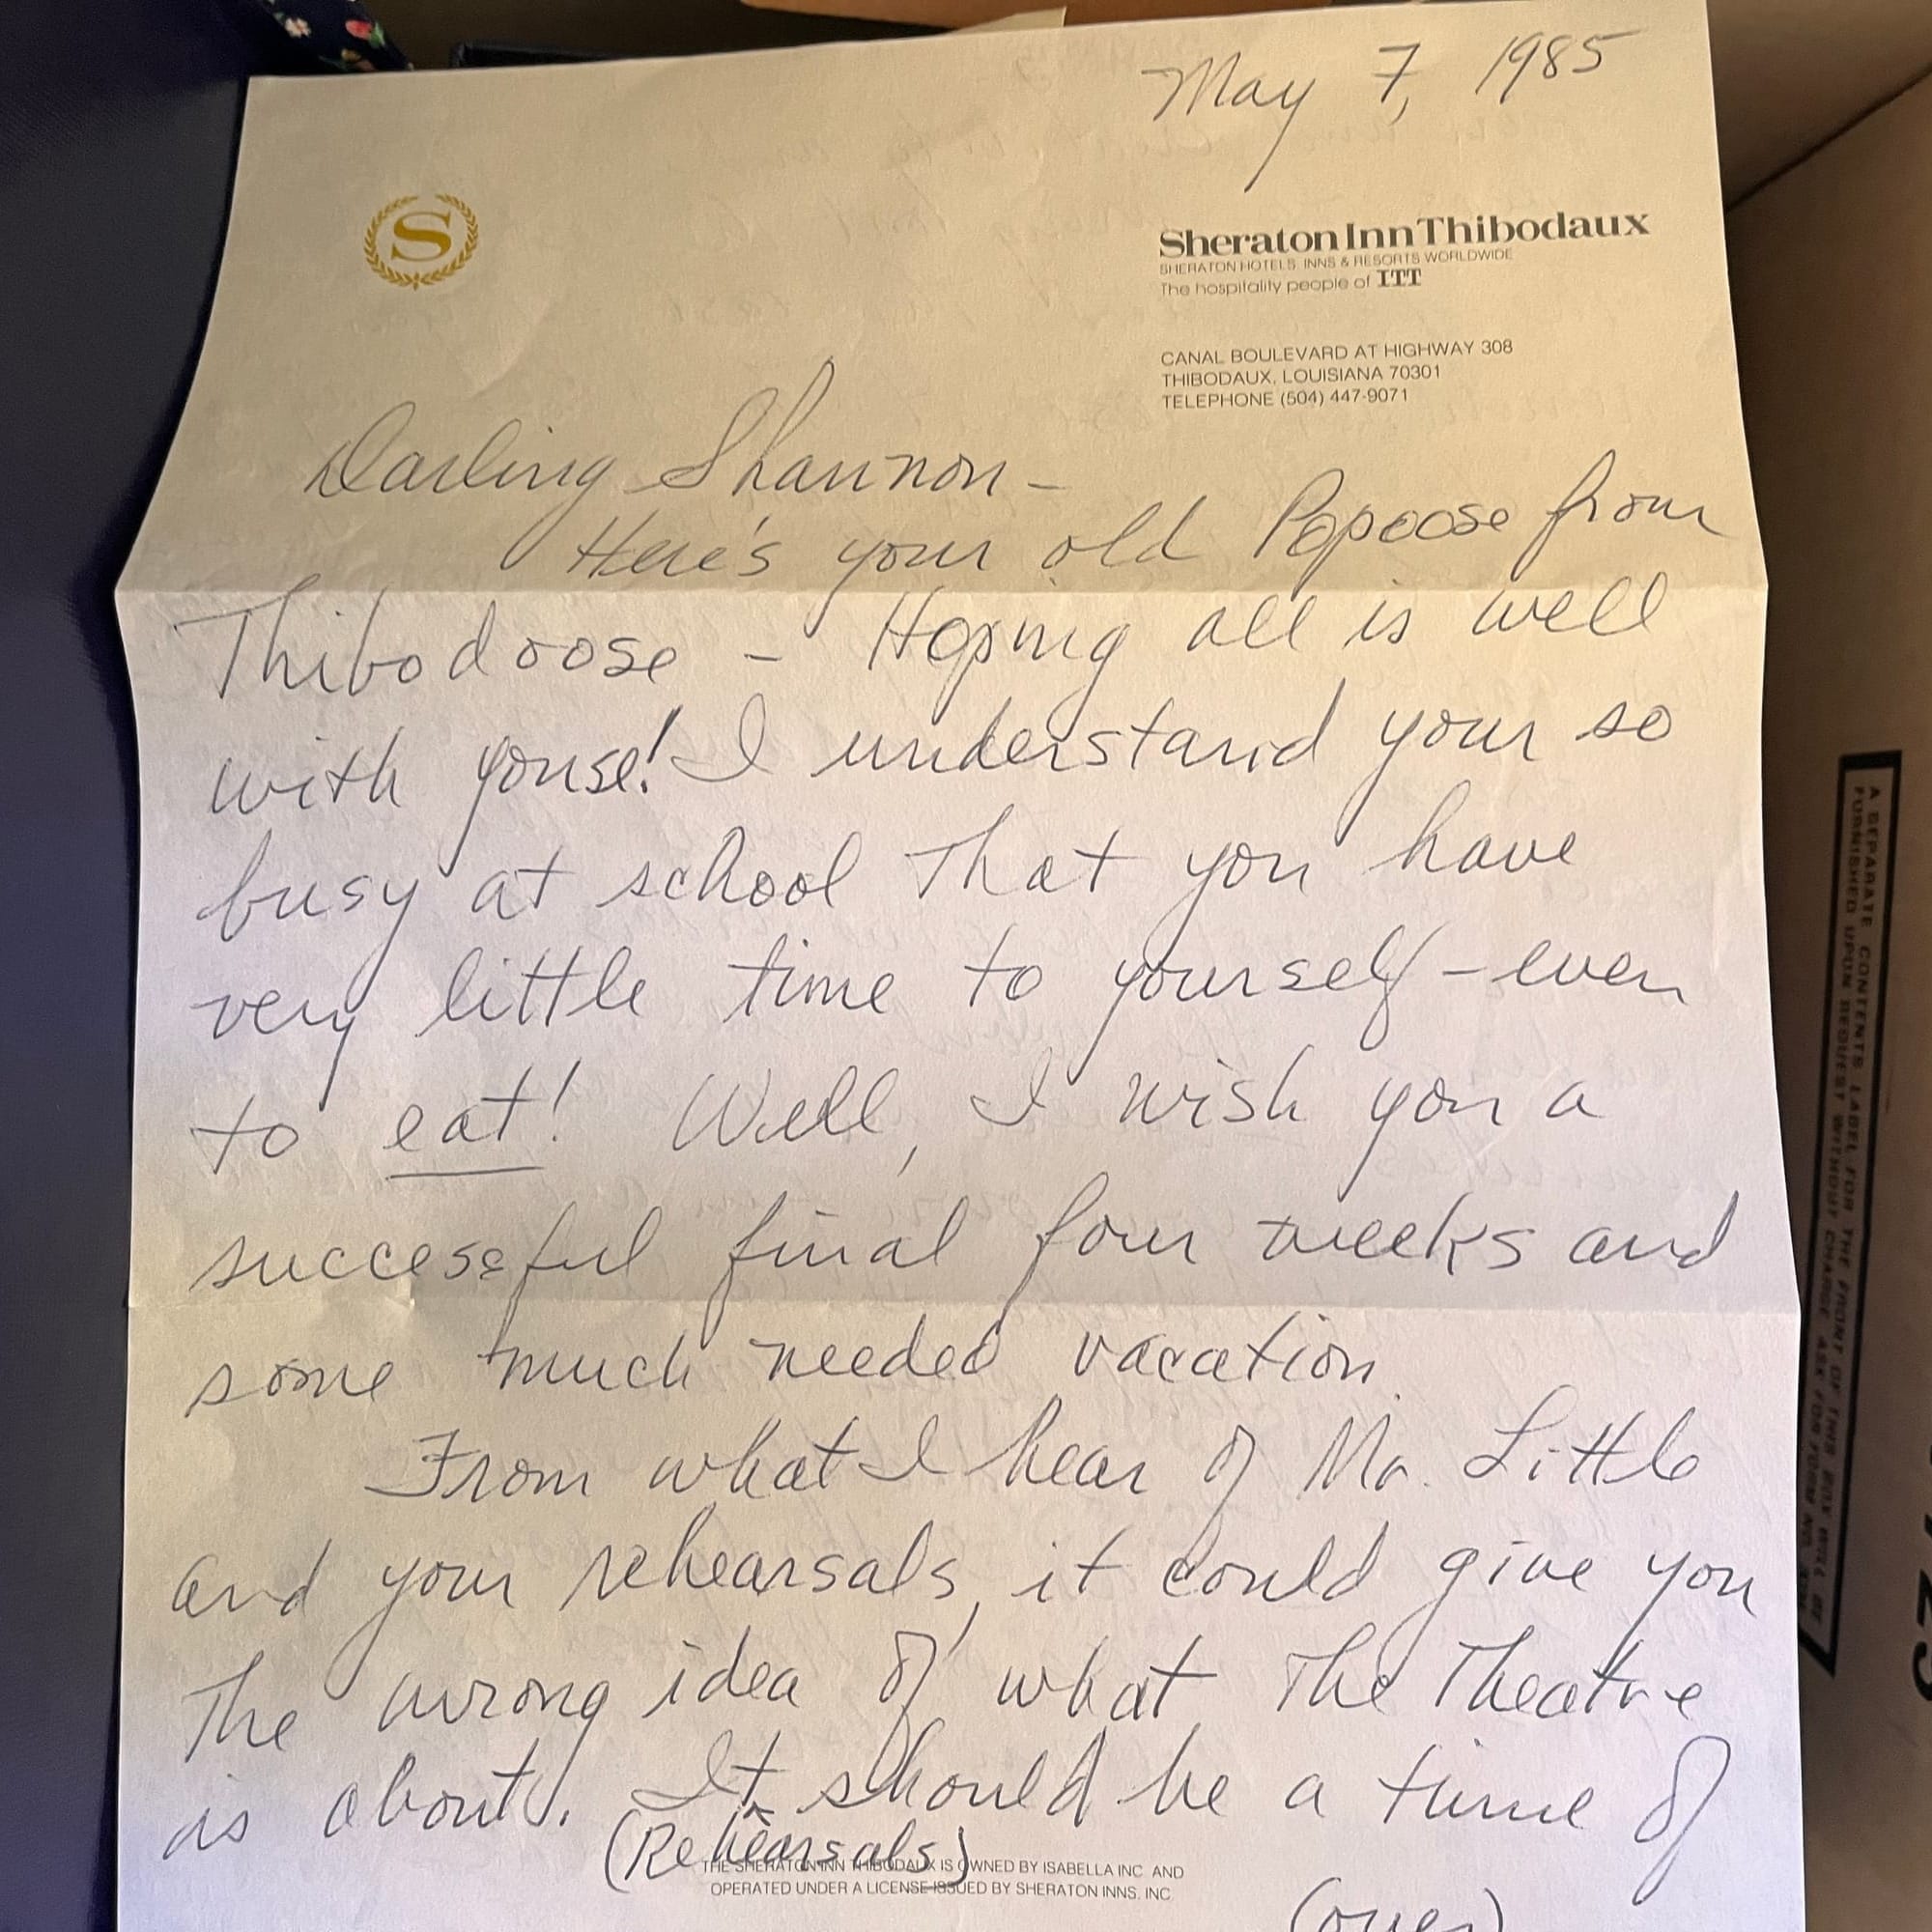 May 7, 1985
S
Sheraton Inn Thibodaux
SHERATON HOTELS, INNS & RESORTS WORLDWIDE
The hospitality people of ITT
CANAL BOULEVARD AT HIGHWAY 308
THIBODAUX, LOUISIANA 70301
TELEPHONE (504) 447-9071
Darling Shannon -
Here's your old Popoose from
Thibodoose - Hoping all is well
with youse! I understand your so
busy at school that you have
very little time to yourself - even
to eat! Well, I wish you a
successful final four weeks and
some much needed vacation.
From what I hear of Mr. Little
and your rehearsals, it could give you
the wrong idea of what the Theatre
is about. It should be a time of
(Rehearsals)
THE SHERATON INN THIBODAUX IS OWNED BY ISABELLA INC. AND
OPERATED UNDER A LICENSE ISSUED BY SHERATON INNS, INC.
(over)
A SEPARATE CONTENTS LABEL FOR THE FRONT OF THIS BOX WILL BE
FURNISHED UPON REQUEST WITHOUT CHARGE ASK FOR FORM NO.